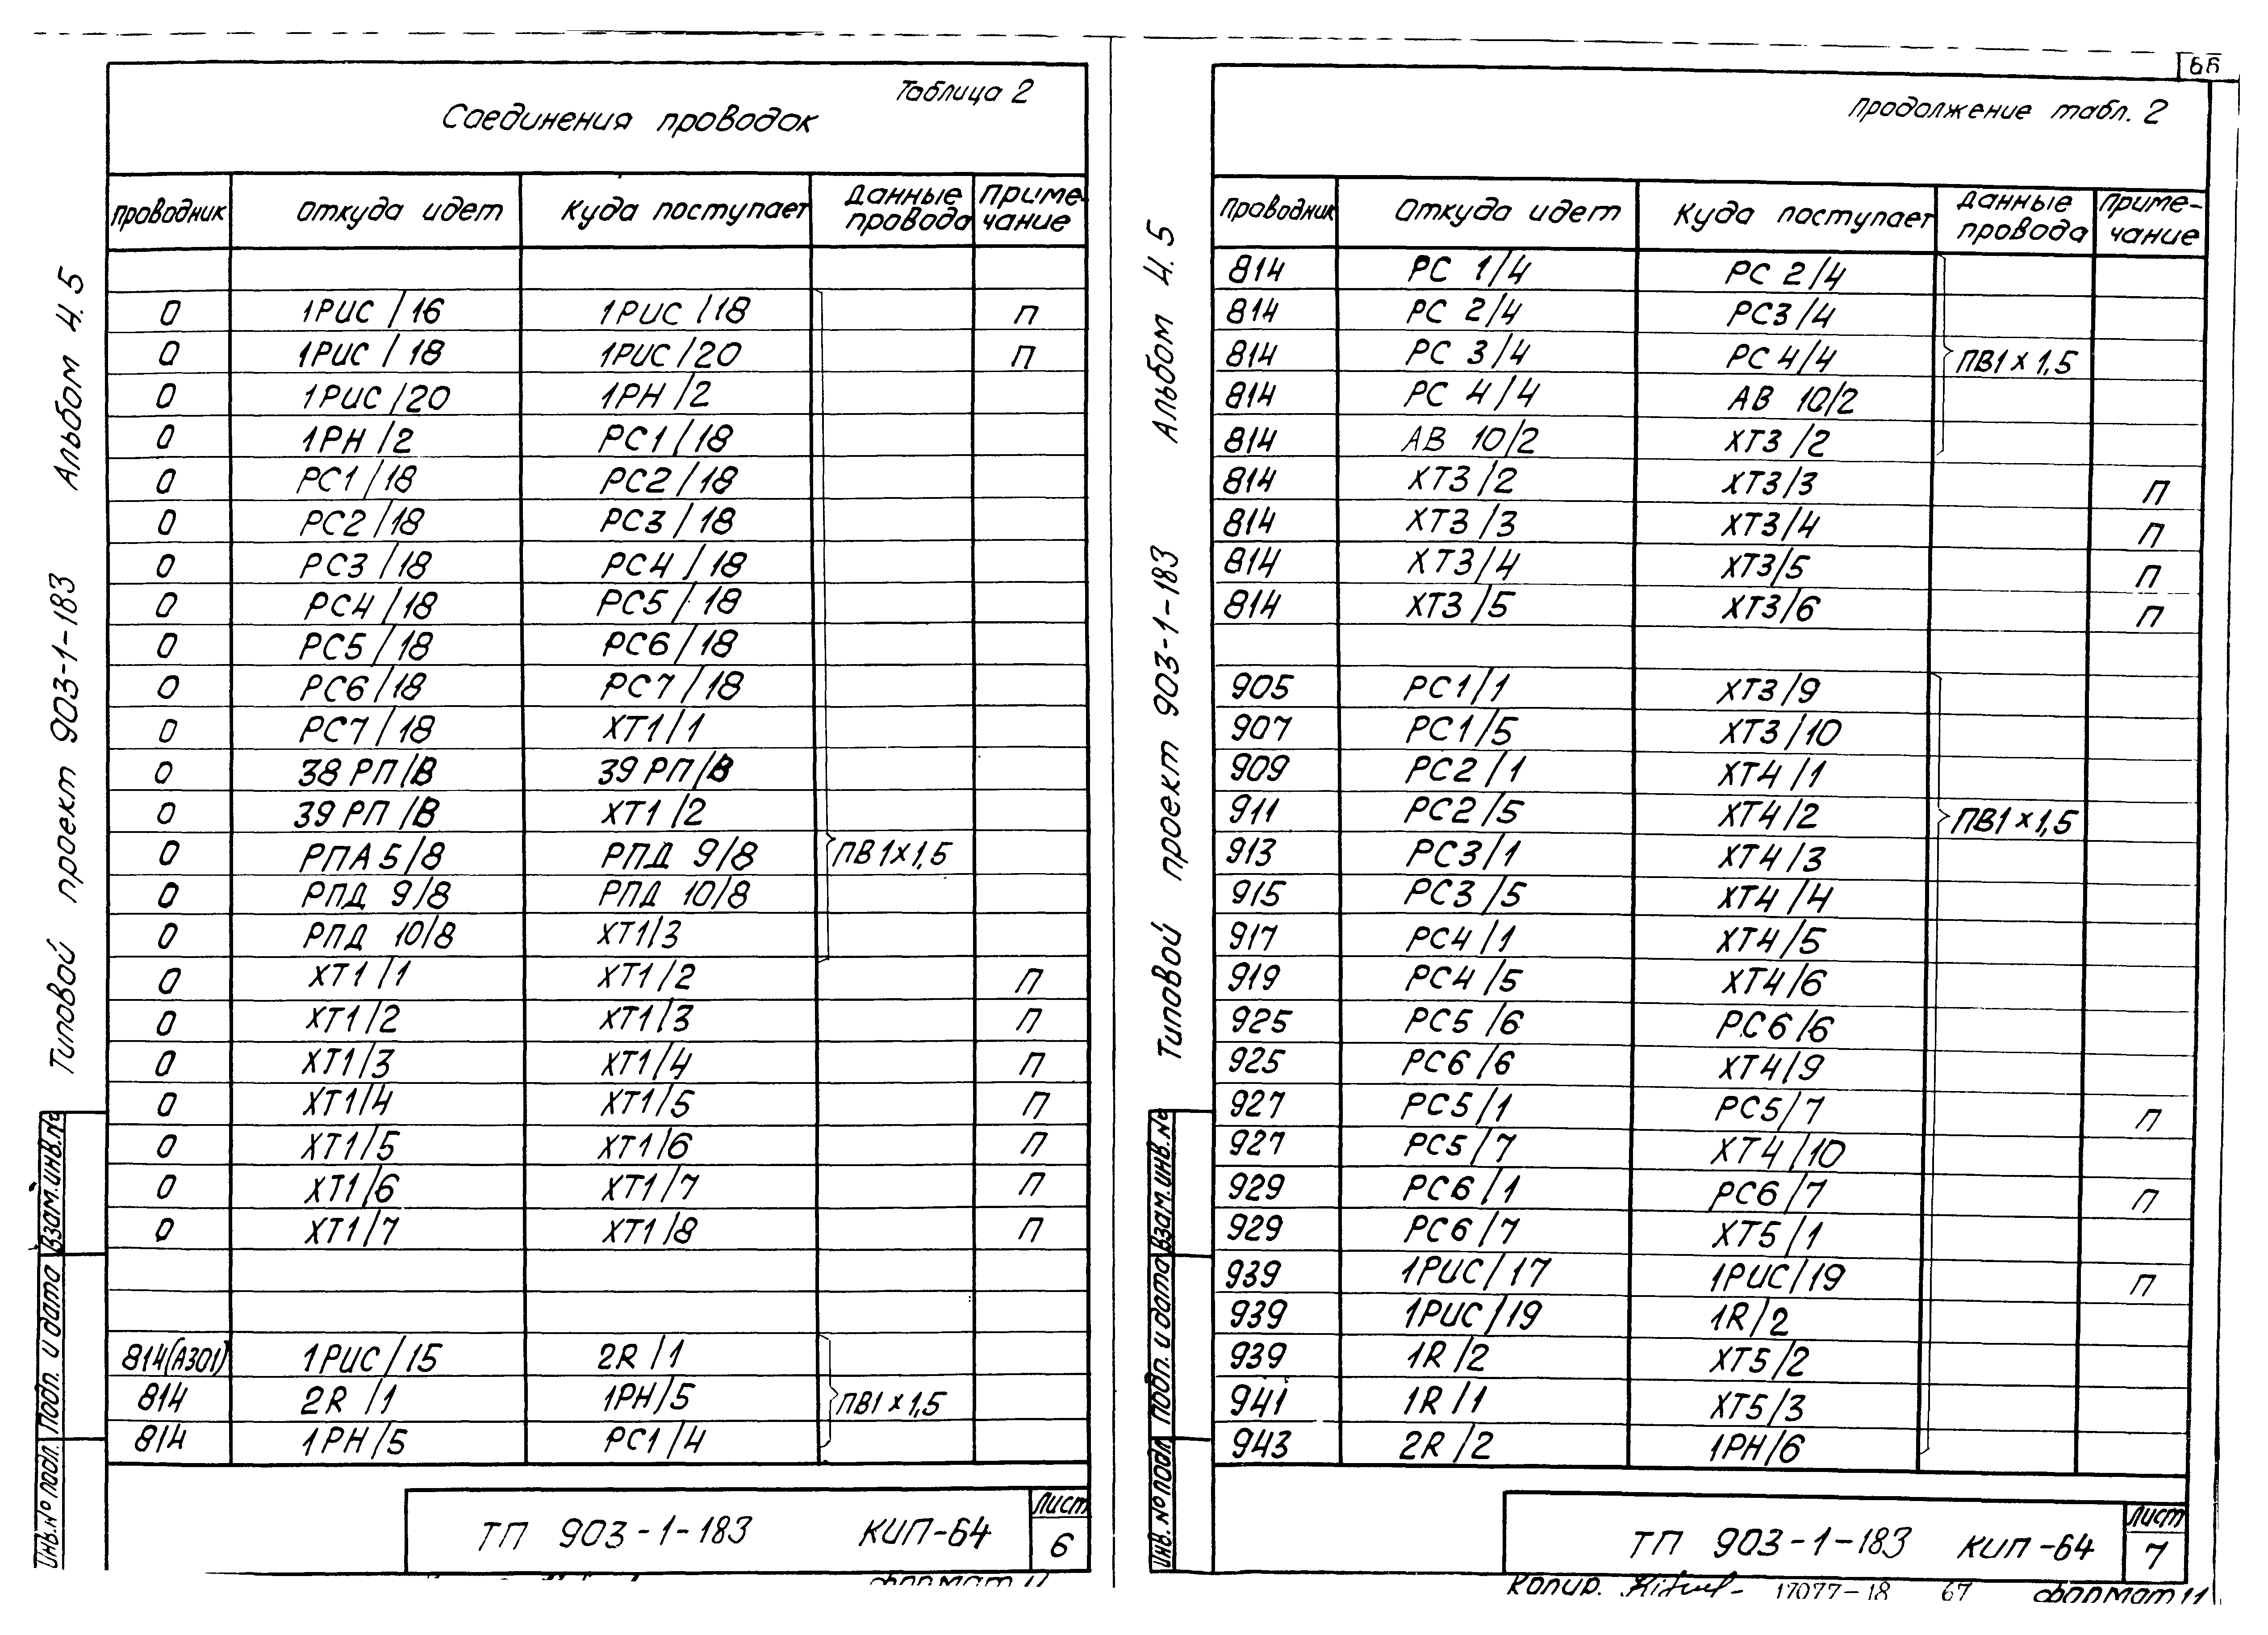 Таблица 2
Соединения проводок
Проводник Откуда идет Куда поступает Данные провода Примечание
0 1РИС/16 1РИС/18 П
0 1РИС/18 1РИС/20 П
0 1РИС/20 1РН/2
0 1РН/2 РС1/18
0 РС1/18 РС2/18
0 РС2/18 РС3/18
0 РС3/18 РС4/18
0 РС4/18 РС5/18
0 РС5/18 РС6/18
0 РС6/18 РС7/18
0 РС7/18 ХТ1/1
0 38 РП/В 39 РП/В
0 39 РП/В ХТ1/2
0 РПА 5/8 РПД 9/8 ПВ 1х1,5
0 РПД 9/8 РПД 10/8
0 РПД 10/8 ХТ1/3
0 ХТ1/1 ХТ1/2 П
0 ХТ1/2 ХТ1/3 П
0 ХТ1/3 ХТ1/4 П
0 ХТ1/4 ХТ1/5 П
0 ХТ1/5 ХТ1/6 П
0 ХТ1/6 ХТ1/7 П
0 ХТ1/7 ХТ1/8 П
814(А301) 1РИС/15 2R/1
814 2R/1 1РН/5 ПВ1х1,5
814 1РН/5 РС1/4
ТП 903-1-183 КИП-64 Лист
6
Формат 11
Альбом 4.5
Типовой проект 903-1-183
Взам.инв.№
Подп. и дата
Инв.№ подл.
66
Продолжение табл. 2
Проводник Откуда идет Куда поступает Данные провода Приме-чание
814 РС 1/4 РС 2/4
814 РС 2/4 РС3/4
814 РС 3/4 РС 4/4 ПВ1х1,5
814 РС 4/4 АВ 10/2
814 АВ 10/2 ХТ3/2
814 ХТ3/2 ХТ3/3 П
814 ХТ3/3 ХТ3/4 П
814 ХТ3/4 ХТ3/5 П
814 ХТ3/5 ХТ3/6 П
905 РС1/1 ХТ3/9
907 РС1/5 ХТ3/10
909 РС2/1 ХТ4/1
911 РС2/5 ХТ4/2 ПВ1х1,5
913 РС3/1 ХТ4/3
915 РС3/5 ХТ4/4
917 РС4/1 ХТ4/5
919 РС4/5 ХТ4/6
925 РС5/6 РС6/6
925 РС6/6 ХТ4/9
927 РС5/1 РС5/7 П
927 РС5/7 ХТ4/10
929 РС6/1 РС6/7 П
929 РС6/7 ХТ5/1
939 1РИС/17 1РИС/19 П
939 1РИС/19 1R/2
939 1R/2 ХТ5/2
941 1R/1 ХТ5/3
943 2R/2 1РН/6
ТП 903-1-183 КИП-64 Лист
7
Копир. 17077-18 67 Формат 11
Альбом 4.5
Типовой проект 903-1-183
Взам.инв.№
Подп. и дата
Инв.№ подл